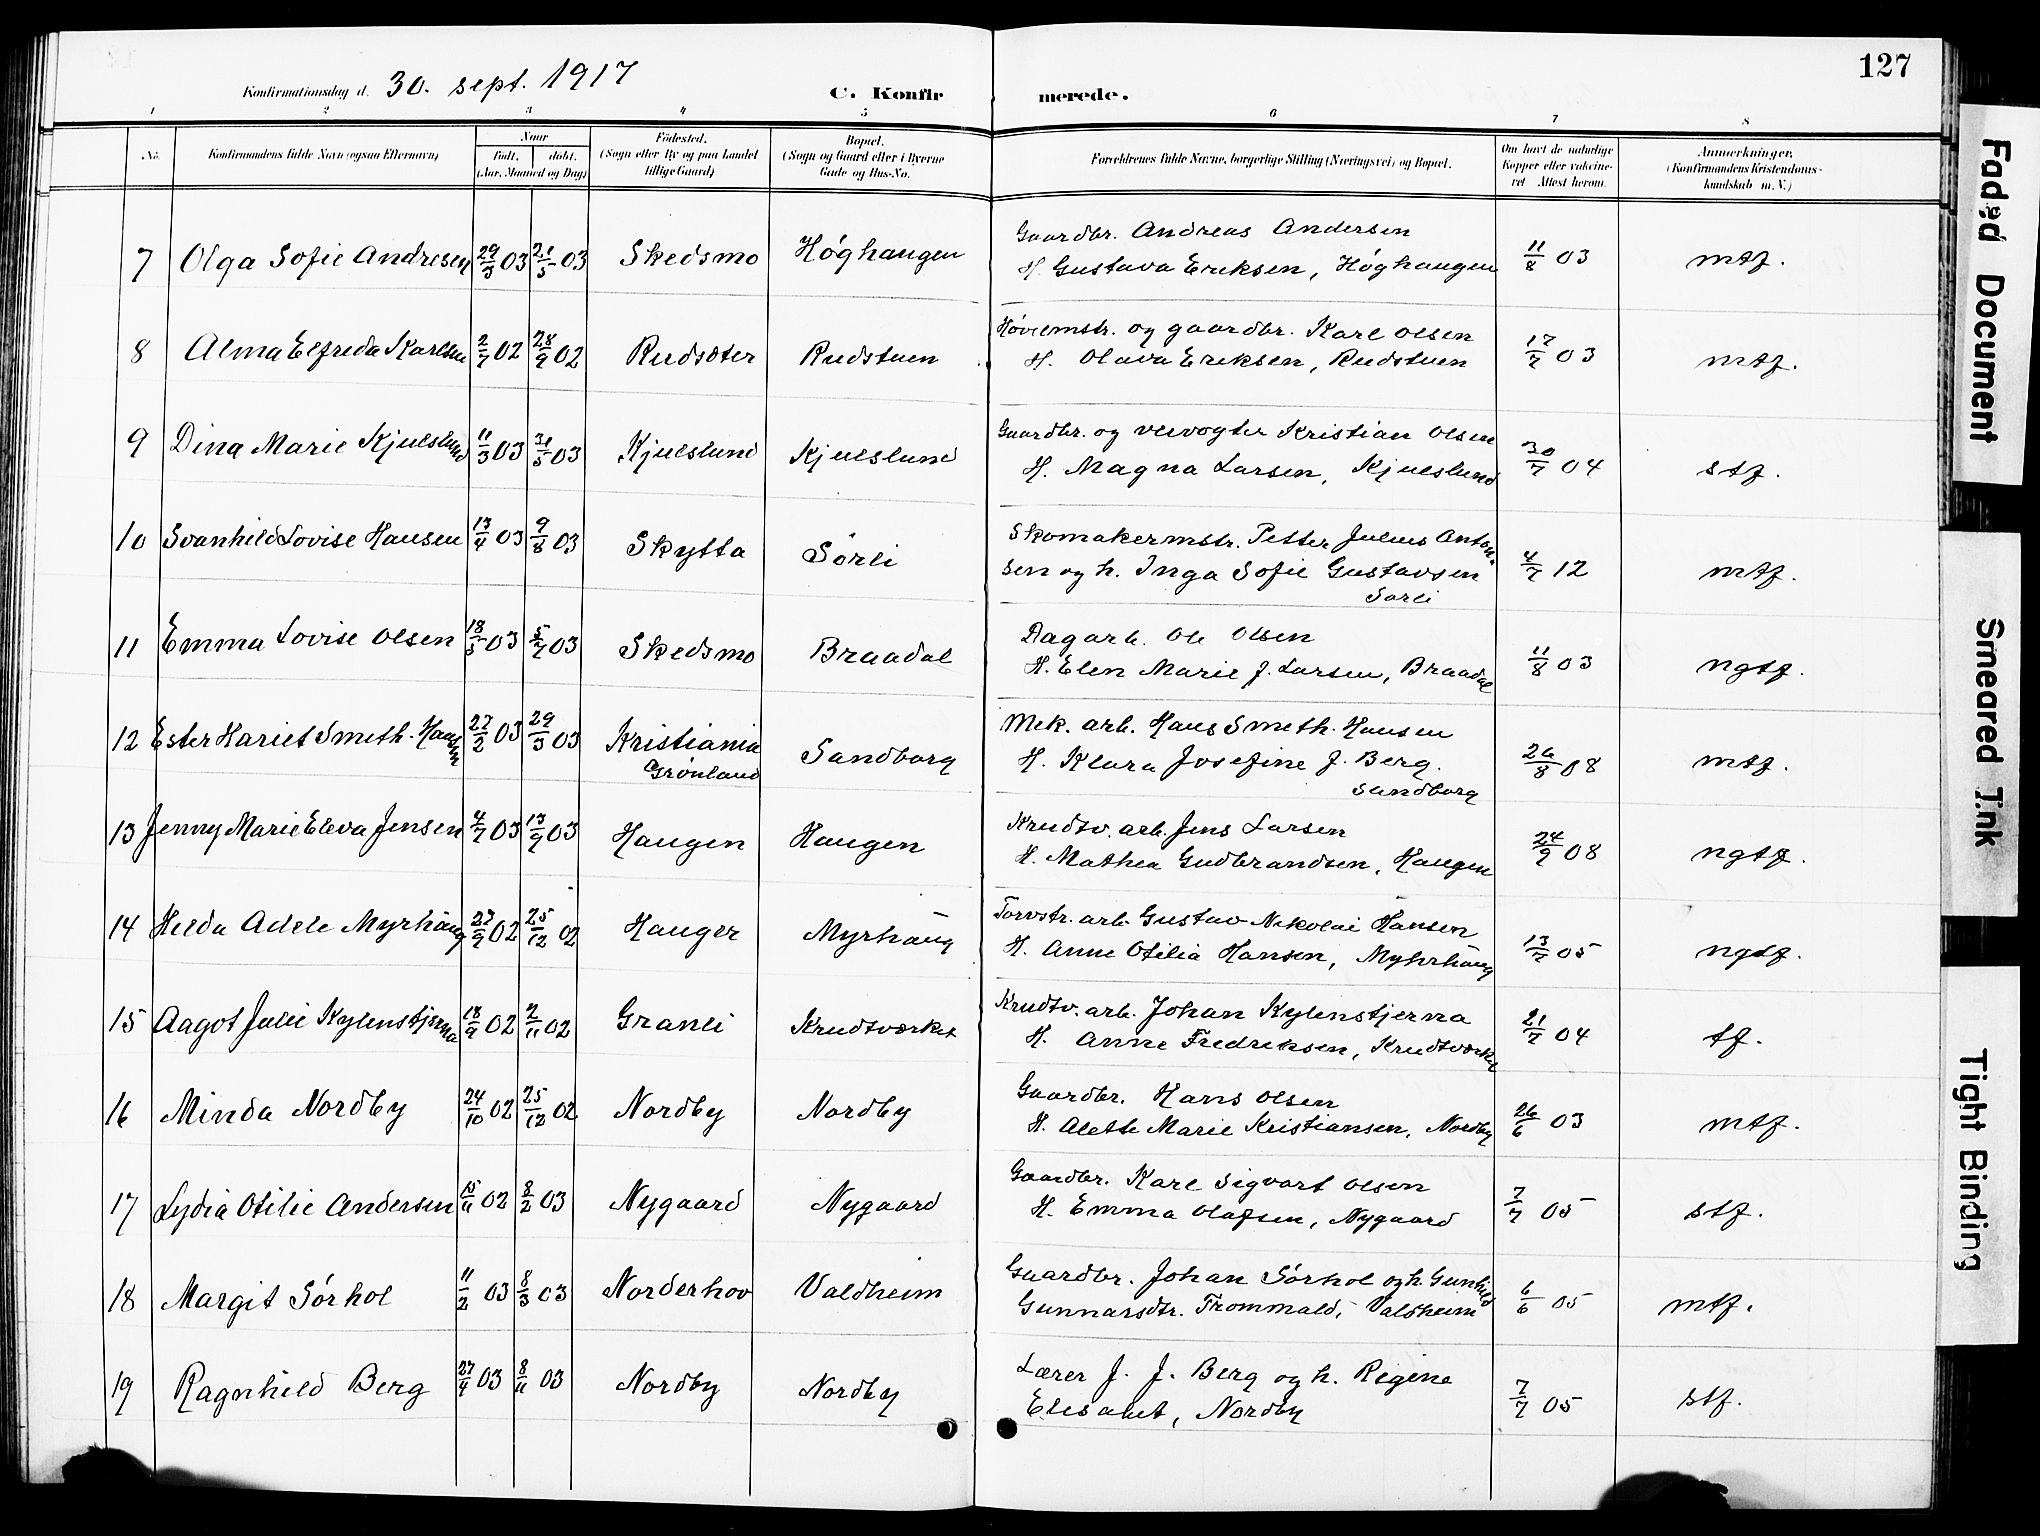 127
Konfirmationsdag d. 30. sept. 1917
C. Konfirmerede.
1 2 3 4 5 6 7 8
No. Konfirmandens fulde Navn (ogsaa Efternavn) Naar født. døbt. (Aar, Maaned og Dag) Fødested. (Sogn eller By og paa Landet tillige Gaard) Bopæl. (Sogn og Gaard eller i Byerne Gade og Hus-No. Forældrenes fulde Navne, borgerlige Stilling (Næringsvei) og Bopæl. Om havt de naturlige Kopper eller vaccineret Attest herom. Anmerkninger. (Konfirmandens Kristendomskundskab m. V.)
7 Olga Sofie Andresen 29/3 03 21/5 03 Skedsmo Høghaugen Gaardbr. Andreas Andersen
H. Gustava Eriksen, Høghaugen 11/8 03 mtf.
8 Alma Elfreda Karlsen 2/7 02 28/9 02 Rudsæter Rudstuen Høvlemstr. og gaardbr. Karl Olsen
H. Olava Eriksen, Rudstuen 17/7 03 mtf.
9 Dina Marie Kjuelslund 11/3 03 31/5 03 Kjuelslund Kjuelslund Gaardbr. og veivogter Kristian Olsen
H. Magna Larsen, Kjuelslund 30/7 04 stf.
10 Svanhild Lovise Hansen 13/4 03 9/8 03 Skytta Sørli Skomakermstr. Petter Julius Anton-
sen og h. Inga Sofie Gustavsen
Sørli 4/7 12 mtf.
11 Emma Lovise Olsen 18/5 03 5/7 03 Skedsmo Braadal Dagarb. Ole Olsen
H. Elen Marie f. Larsen, Braadal 11/8 03 ngtf.
12 Ester Hariet Smeth-Hansen 27/2 03 29/3 03 Kristiania
Grønland Sandborg Mek. arb. Hans Smeth-Hansen
H. Klara Josefine f. Berg.
Sandborg 26/8 08 mtf.
13 Jenny Marie Eleva Jensen 4/7 03 13/9 03 Haugen Haugen Krudtv. arb. Jens Larsen
H. Mathea Gudbrandsen, Haugen 24/9 08 ngtf.
14 Hilda Adele Myrhaug 27/9 02 25/12 02 Hauger Myrhaug Torvstr. arb. Gustav Nikolai Hansen
H. Anne Otilia Hansen, Myhrhaug 13/7 05 ngtf.
15 Aagot Julie Kylenstjerna 18/9 02 2/11 02 Granli Krudtværket Krudtv. arb. Johan Kylenstjerna
H. Anne Fredriksen, Krudtværket 21/7 04 tf.
16 Minda Nordby 24/10 02 25/12 02 Nordby Nordby Gaardbr. Hans Olsen
H. Alette Marie Kristiansen, Nordby 26/6 03 mtf.
17 Lydia Otilie Andersen 15/11 02 8/2 03 Nygaard Nygaard Gaardbr. Karl Sigvart Olsen
H. Emma Olafsen, Nygaard 7/7 05 stf.
18 Margit Sørhol 11/2 03 8/3 03 Norderhov Valdheim Gaardbr. Johan Sørhol og h. Gunhild
Gunnarsdtr. Trommald, Valdheim 6/6 05 mtf.
19 Ragnhild Berg 27/4 03 8/11 03 Nordby Nordby Lærer J. J. Berg og h. Regine
Elisabet, Nordby 7/7 05 stf.
Faded Document
Smeared Ink
Tight Binding